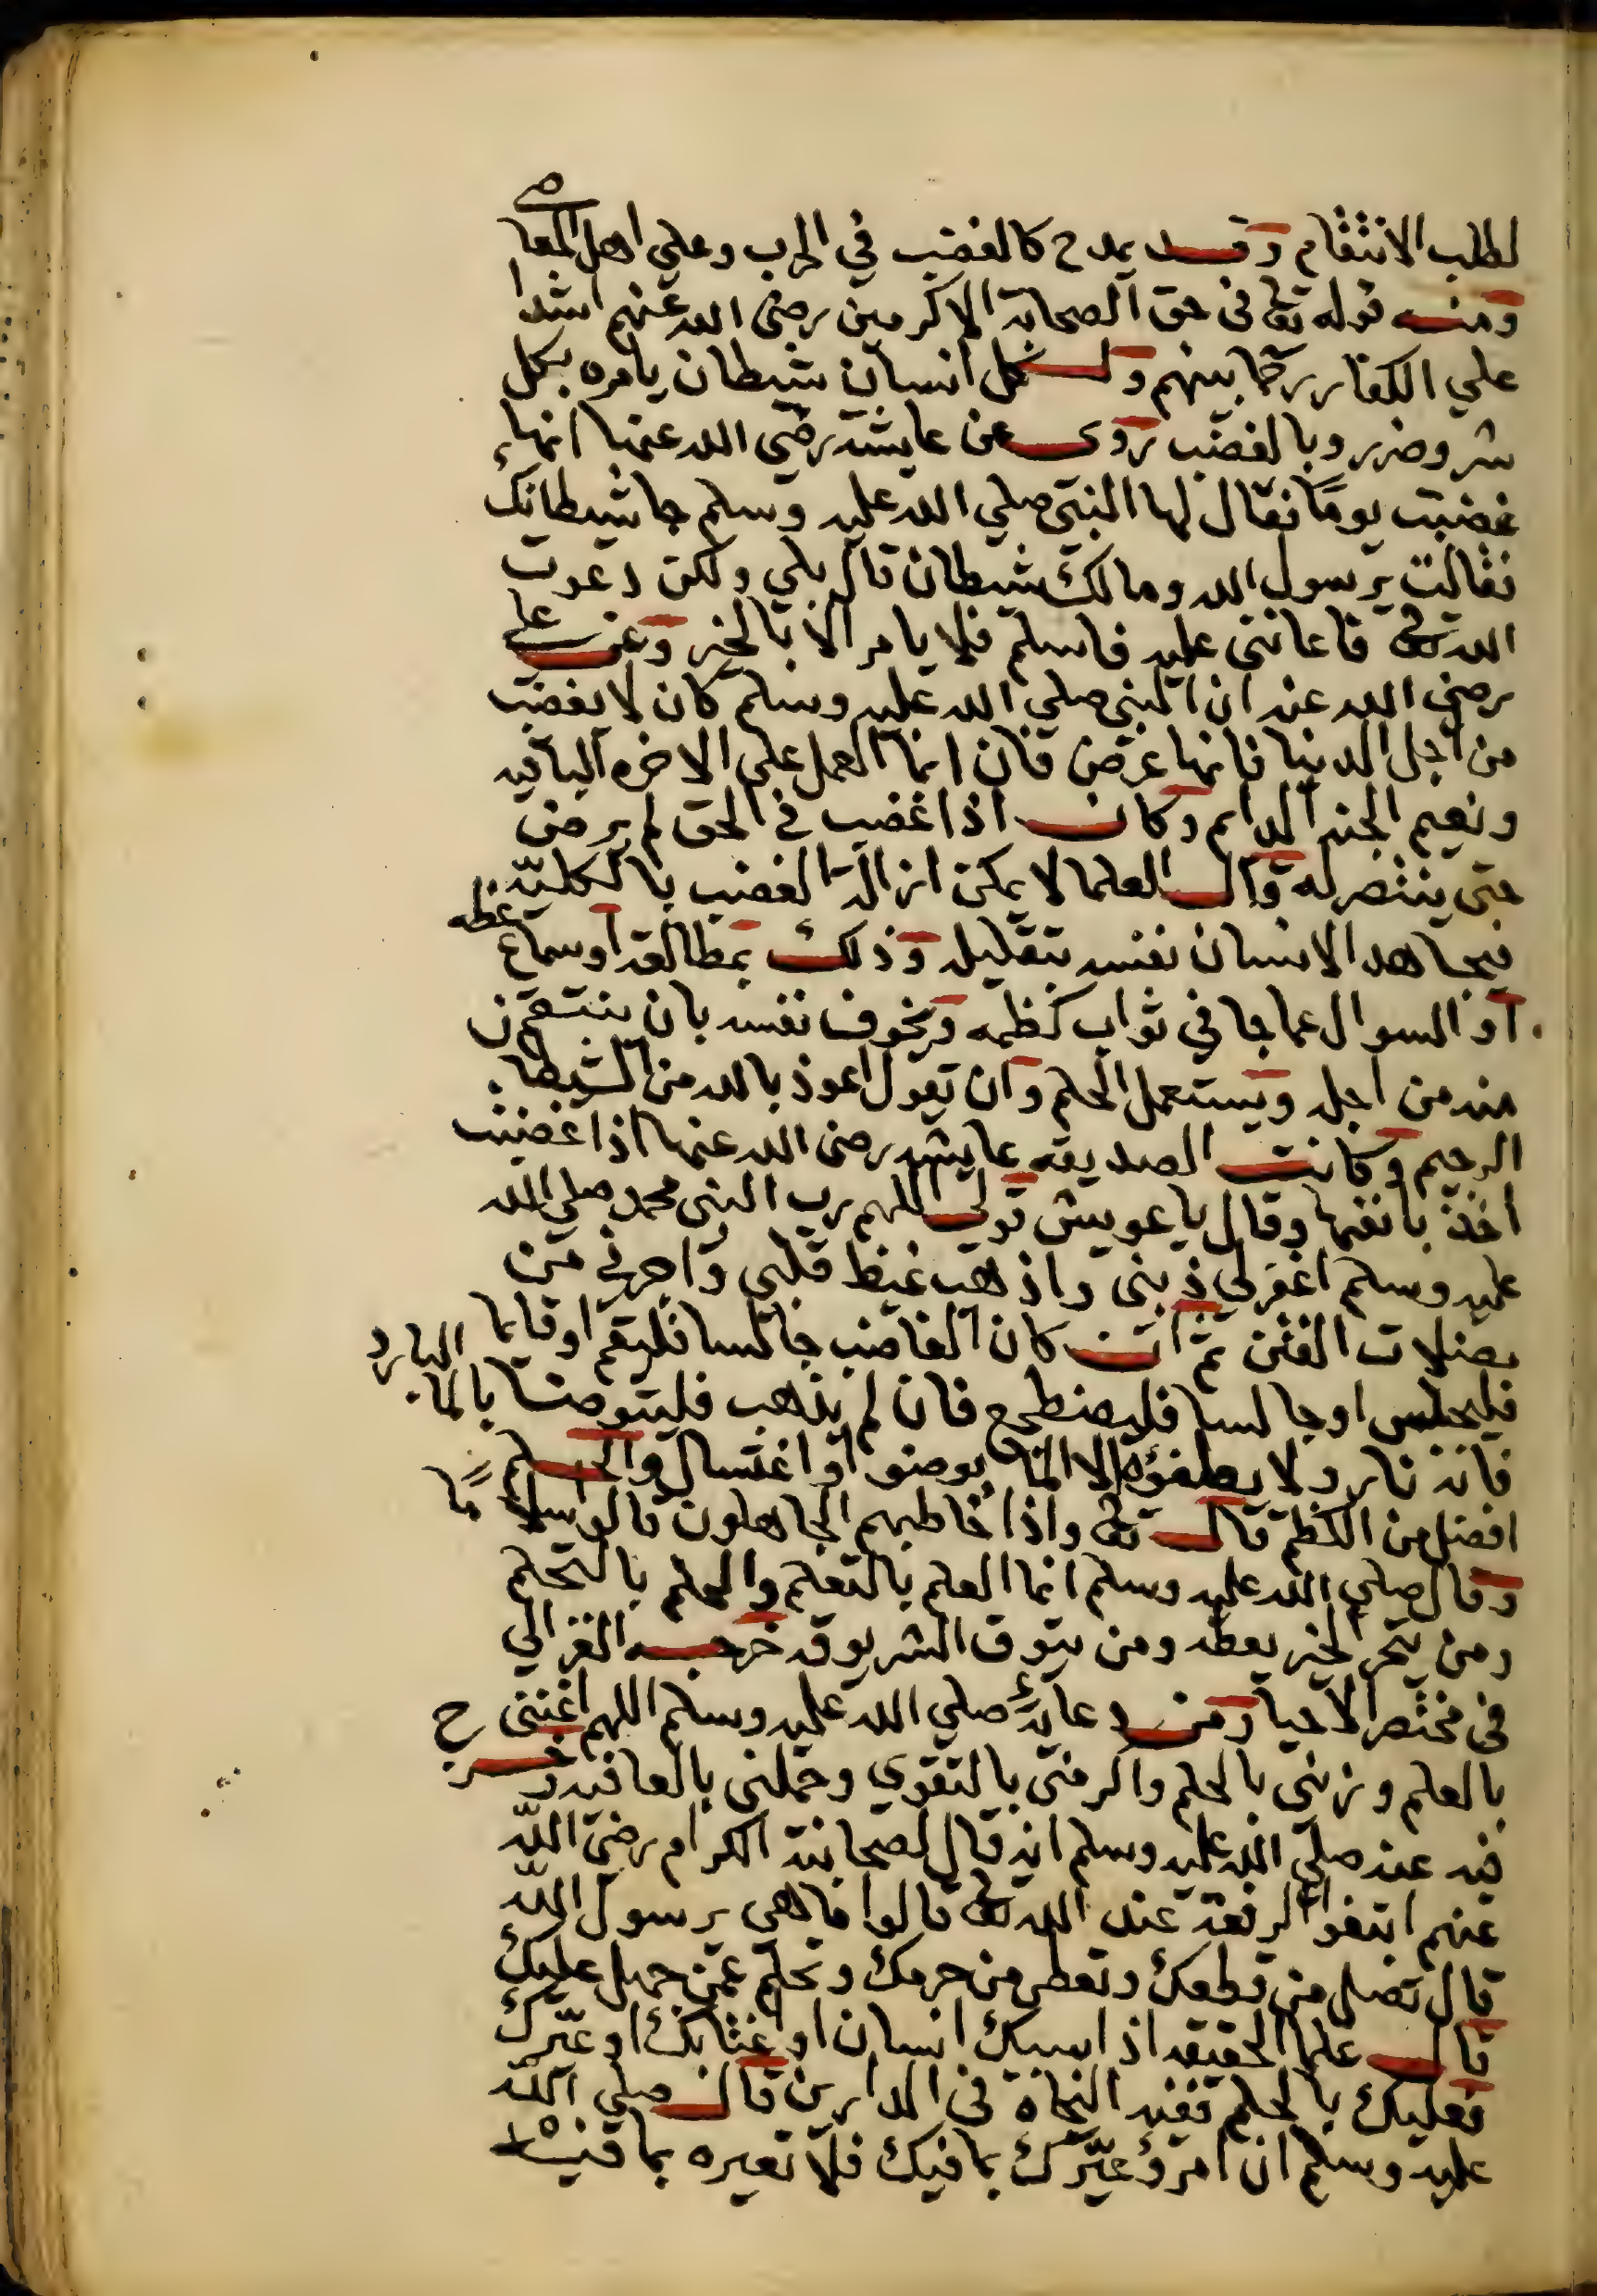 لطلب الانتقام وقد يمدح كالغضب في الحرب وعلي اهل المعاصي
ومنه قوله تعا في حق الصحابة الاكرمين رضي الله عنهم اشدا
علي الكفار رحما بينهم ولكل انسان شيطان يامره بكل
شر وضرر وبالغضب روى عن عايشة رضي الله عنها انها
غضبت يوما فقال لها النبي صلي الله عليه وسلم جا شيطانك
فقالت يرسول الله ومالك شيطان قال بلي ولكن دعوت
الله تعا فاعانني عليه فاسلم فلا يامر الا بالخير وعن علي
رضي الله عنه ان النبي صلي الله عليه وسلم كان لا يغضب
من اجل الدنيا فانها عرض فان انما العمل علي الاخره الباقيه
ونعيم الجنه الدايم وكان اذا غضب في الحق لم يرض
حتي ينتصر له وقال العلما لا يمكن ازالة الغضب بالكلية
فيجاهد الانسان نفسه بتقليله وذلك بمطالعة او سماع عظه
او السوال عما جا في ثواب كظمه ويخوف نفسه بان ينتقم
منه من اجله ويستعمل الحلم وان تقول اعوذ بالله من الشيطا
الرجيم وكانت الصديقه عايشه رضي الله عنها اذا غضبت
اخذ بانفها وقال يا عويش قولي اللهم رب النبي محمد صلي الله
عليه وسلم اغفر لي ذنبي واذهب غيظ قلبي واجرني من
مضلات الفتن ثم ان كان الغاضب جالسا فليقم او قايما
فليجلس او جالسا فليضطجع فان لم يذهب فليتوضا بالما البارد
فانه نار ولا يطفؤه الا الما بوضو او اغتسال والحلم
افضل من الكظم قال تعا واذا خاطبهم الجاهلون قالوا سلاما
وقال صلي الله عليه وسلم انما العلم بالتعلم والحلم بالتحلم
ومن يتحر الخير يعطه ومن يتوق الشر يوقه خرجه الغزالي
في مختصر الاحيا ومن دعايه صلي الله عليه وسلم اللهم اغنني
بالعلم وزيني بالحلم واكرمني بالتقوي وجملني بالعافيه وخرج
فيه عنه صلي الله عليه وسلم انه قال لصحابته الكرام رضي الله
عنهم ابتغوا الرفعة عند الله تعا قالوا ما هي يرسول الله
قال تصل من قطعك وتعطى من حرمك وتحلم عمن جهل عليك
قال علما الحقيقه اذا سبك انسان او غتابك او عيّرك
فعليك بالحلم ففيه النجاة في الدارين قال صلي الله
عليه وسلم ان امرؤ عيّرك بما فيك فلا تعيره بما فيه